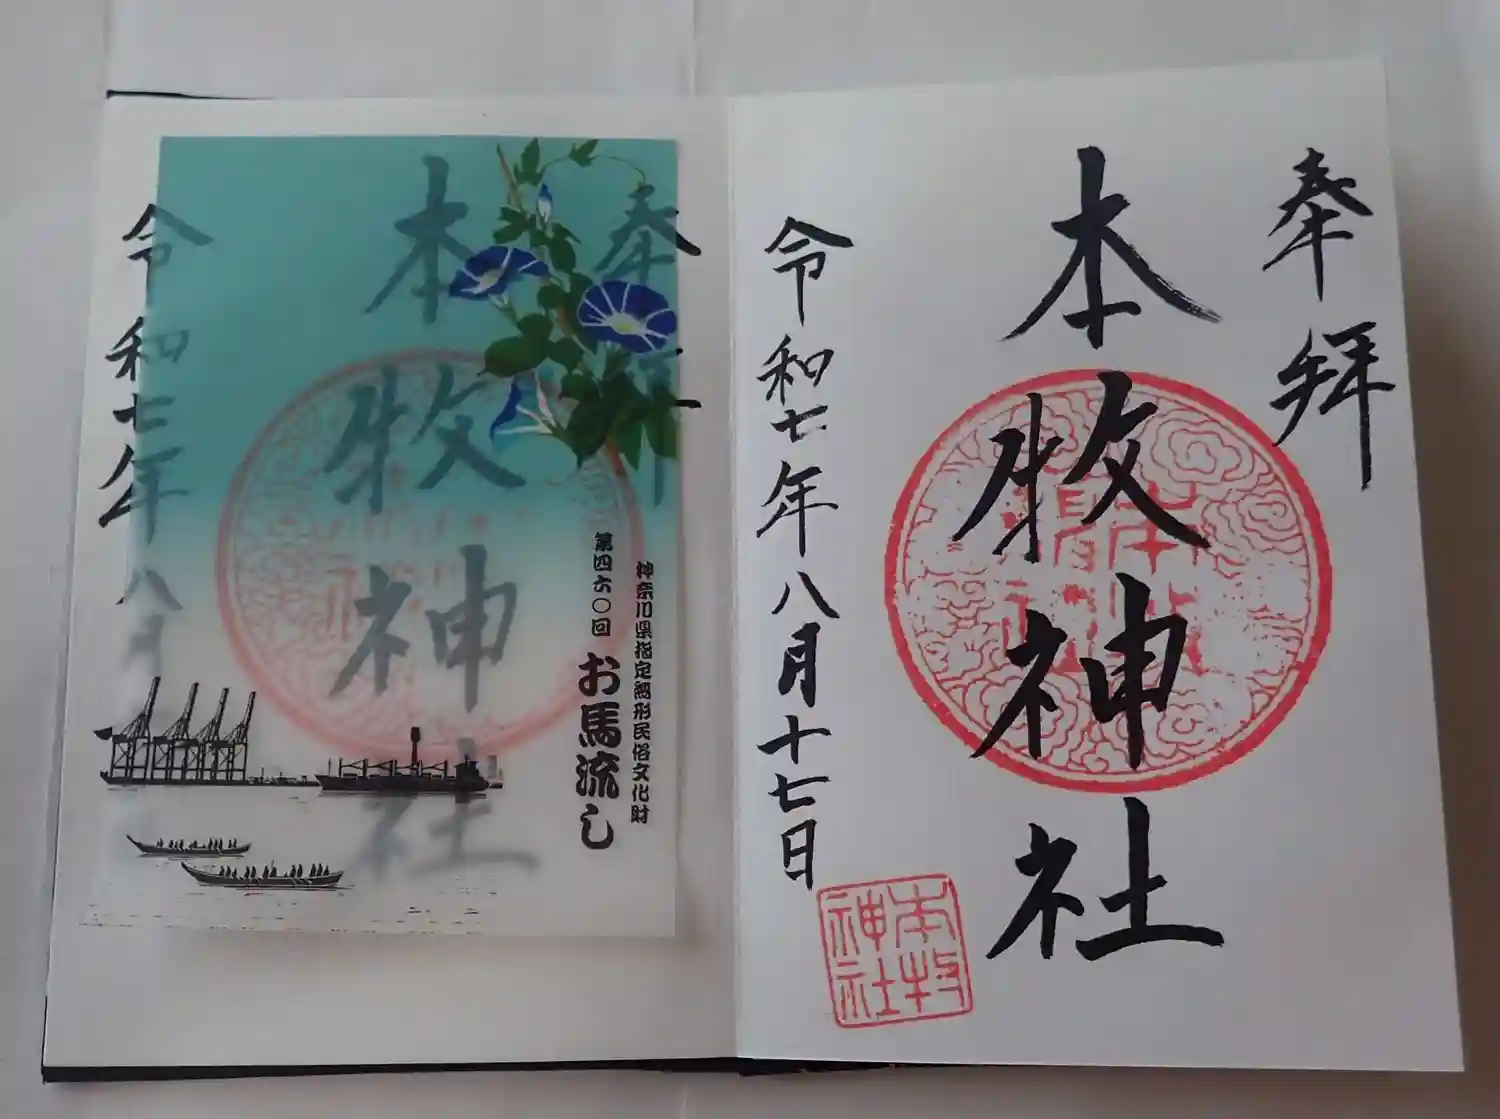 奉拝
本牧神社
令和七年八月十七日
本牧
神社
奉拝
本牧神社
神奈川県指定無形民俗文化財
第四六〇回
お馬流し
令和七年八月